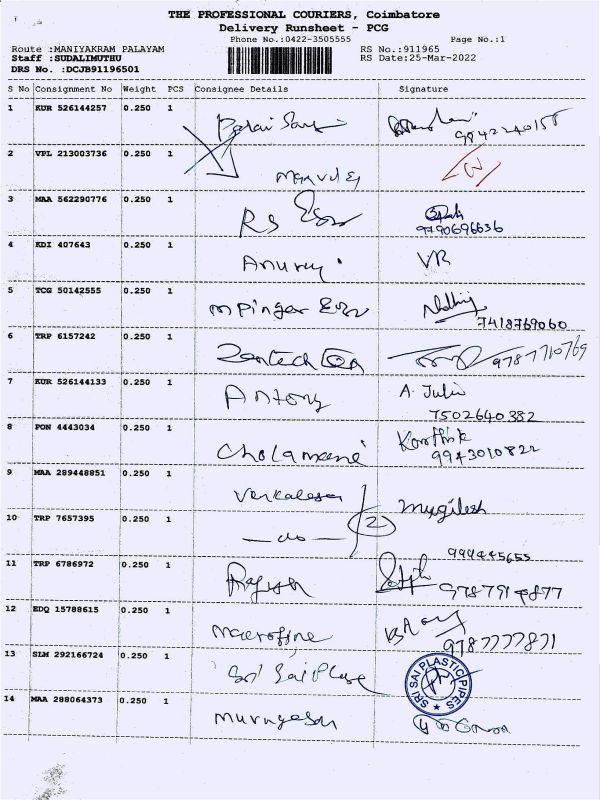 THE PROFESSIONAL COURIERS, Coimbatore
Delivery Runsheet - PCG
Phone No.:0422-3505555 Page No.:1
Route :MANIYAKRAM PALAYAM RS No.:911965
Staff :SUDALIMUTHU RS Date:25-Mar-2022
DRS No. :DCJB91196501
S No Consignment No Weight PCS Consignee Details Signature
1 KUR 526144257 0.250 1
9842240155
2 VPL 213003736 0.250 1
3 MAA 562290776 0.250 1 RS
9790696636
4 KDI 407643 0.250 1 Anuray VR
5 TCG 50142555 0.250 1 mpinger
7418769060
6 TRP 6157242 0.250 1 Zentech 9787710769
7 KUR 526144133 0.250 1 Antony A. Julie
7502640382
8 PON 4443034 0.250 1 Cholamani Karthik
9943010822
9 MAA 289448851 0.250 1 Venkatesan Mugilesh
10 TRP 7657395 0.250 1 — do — 2
999445655
11 TRP 6786972 0.250 1 Rajesh
12 EDQ 15788615 0.250 1 macrofine
9787777871
13 SLM 292166724 0.250 1 Sri Sai SRI SAI PLASTIC PIPES
14 MAA 288064373 0.250 1 Murugesan